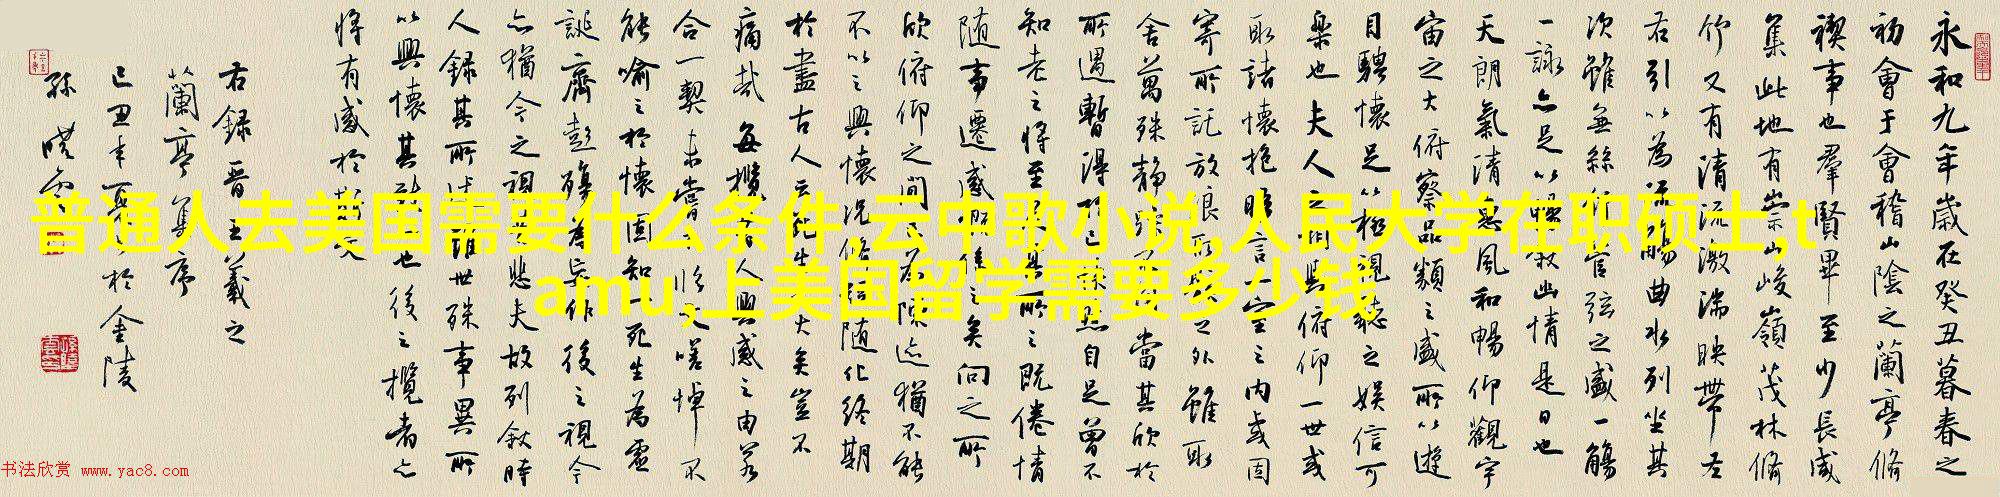 永和九年歲在癸丑暮春之
初會于會稽山陰之蘭亭脩
禊事也羣賢畢至少長咸
集此地有崇山峻嶺茂林脩
竹又有清流激湍映帶左
右引以為流觴曲水列坐其
次雖無絲竹管弦之盛一觴
一詠亦足以暢敘幽情是日也
天朗氣清惠風和暢仰觀宇
宙之大俯察品類之盛所以遊
目騁懷足以極視聽之娛信可
樂也夫人之相與俯仰一世或
取諸懷抱晤言一室之內或因
寄所託放浪形骸之外雖取
舍萬殊靜躁不同當其欣於
所遇暫得於己快然自足曾不
知老之將至及其所之既倦情
隨事遷感慨係之矣向之所
欣俯仰之間已為陳迹猶不能
不以之興懷況脩短隨化終期
於盡古人云死生亦大矣豈不
痛哉每攬昔人興感之由若
合一契未嘗臨文嗟悼不
能喻之於懷固知一死生為虛
誕齊彭殤為妄作後之視今
亦猶今之視昔悲夫故列敘時
人錄其所述雖世殊事異所
以興懷其致一也後之攬者亦
將有感於斯文
右錄晉王羲之
蘭亭集序
己丑年夏於金陵
孫
普通人去美国需要什么条件,云中歌小说,人民大学在职硕士,t
amu,上美国留学需要多少钱
书法欣赏 www.yac8.com